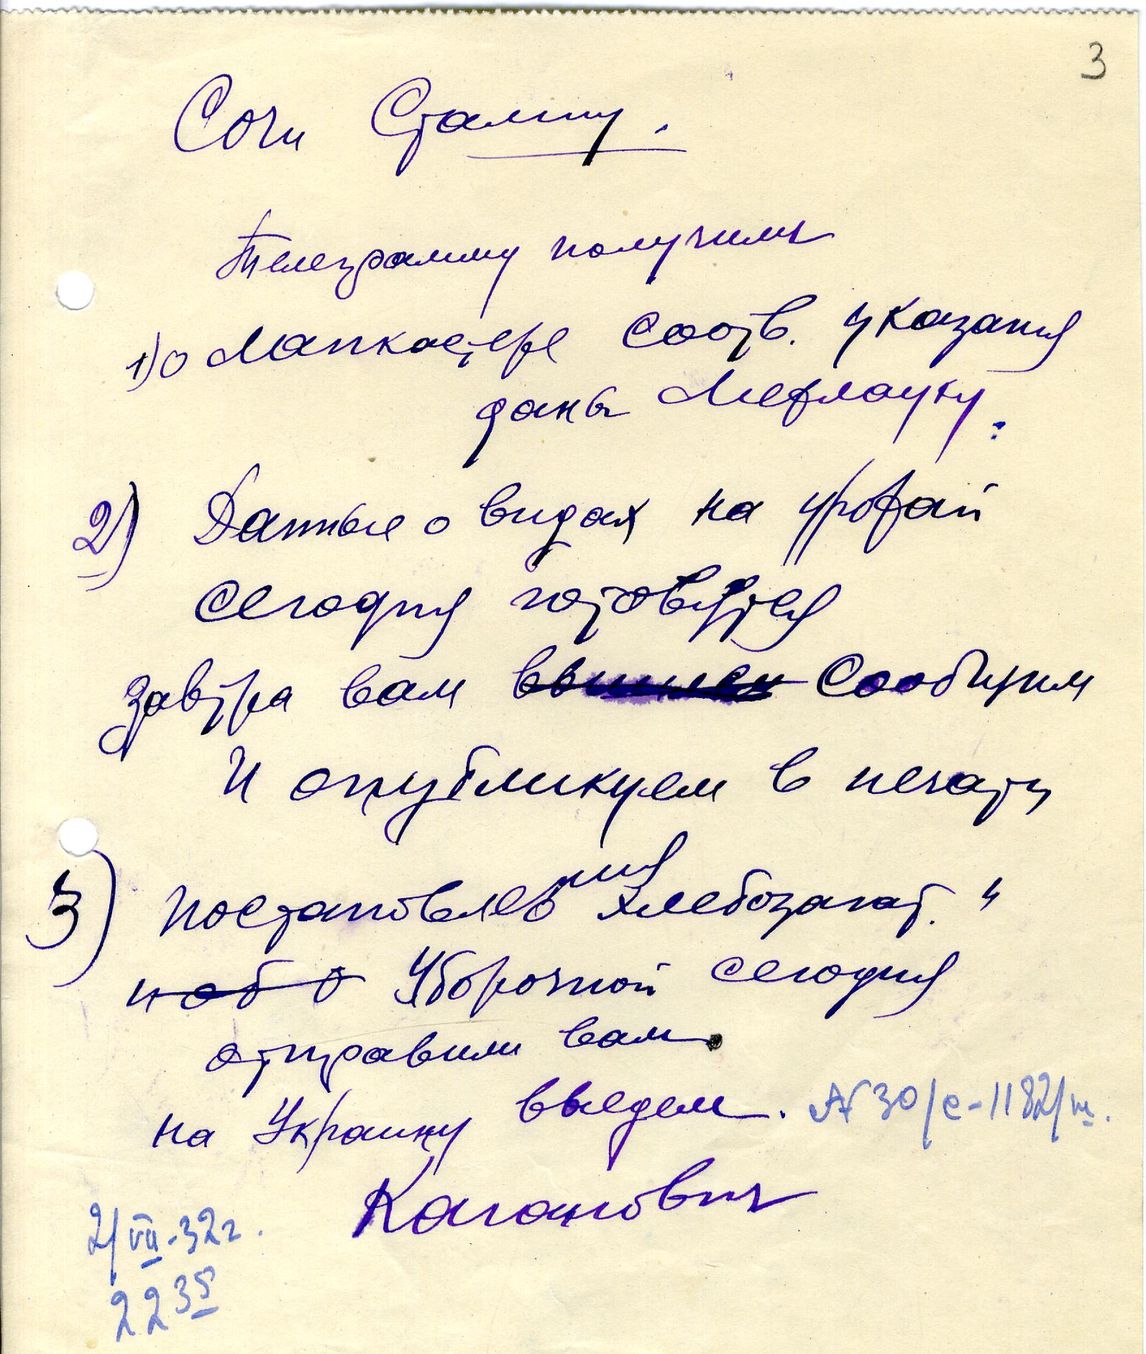 3
Сочи Сталину.
Телеграмму получили
1) о Ланкастере соотв. указания
даны Межлауку.
2) Данные о видах на урожай
сегодня готовятся
завтра вам вышлем сообщим
и опубликуем в печати
3) постановления хлебозагот. и
и об о Уборочной сегодня
отправили вам.
на Украину выедем. № 30/с-1182/ш.
Каганович
2/VII-32 г.
22 35